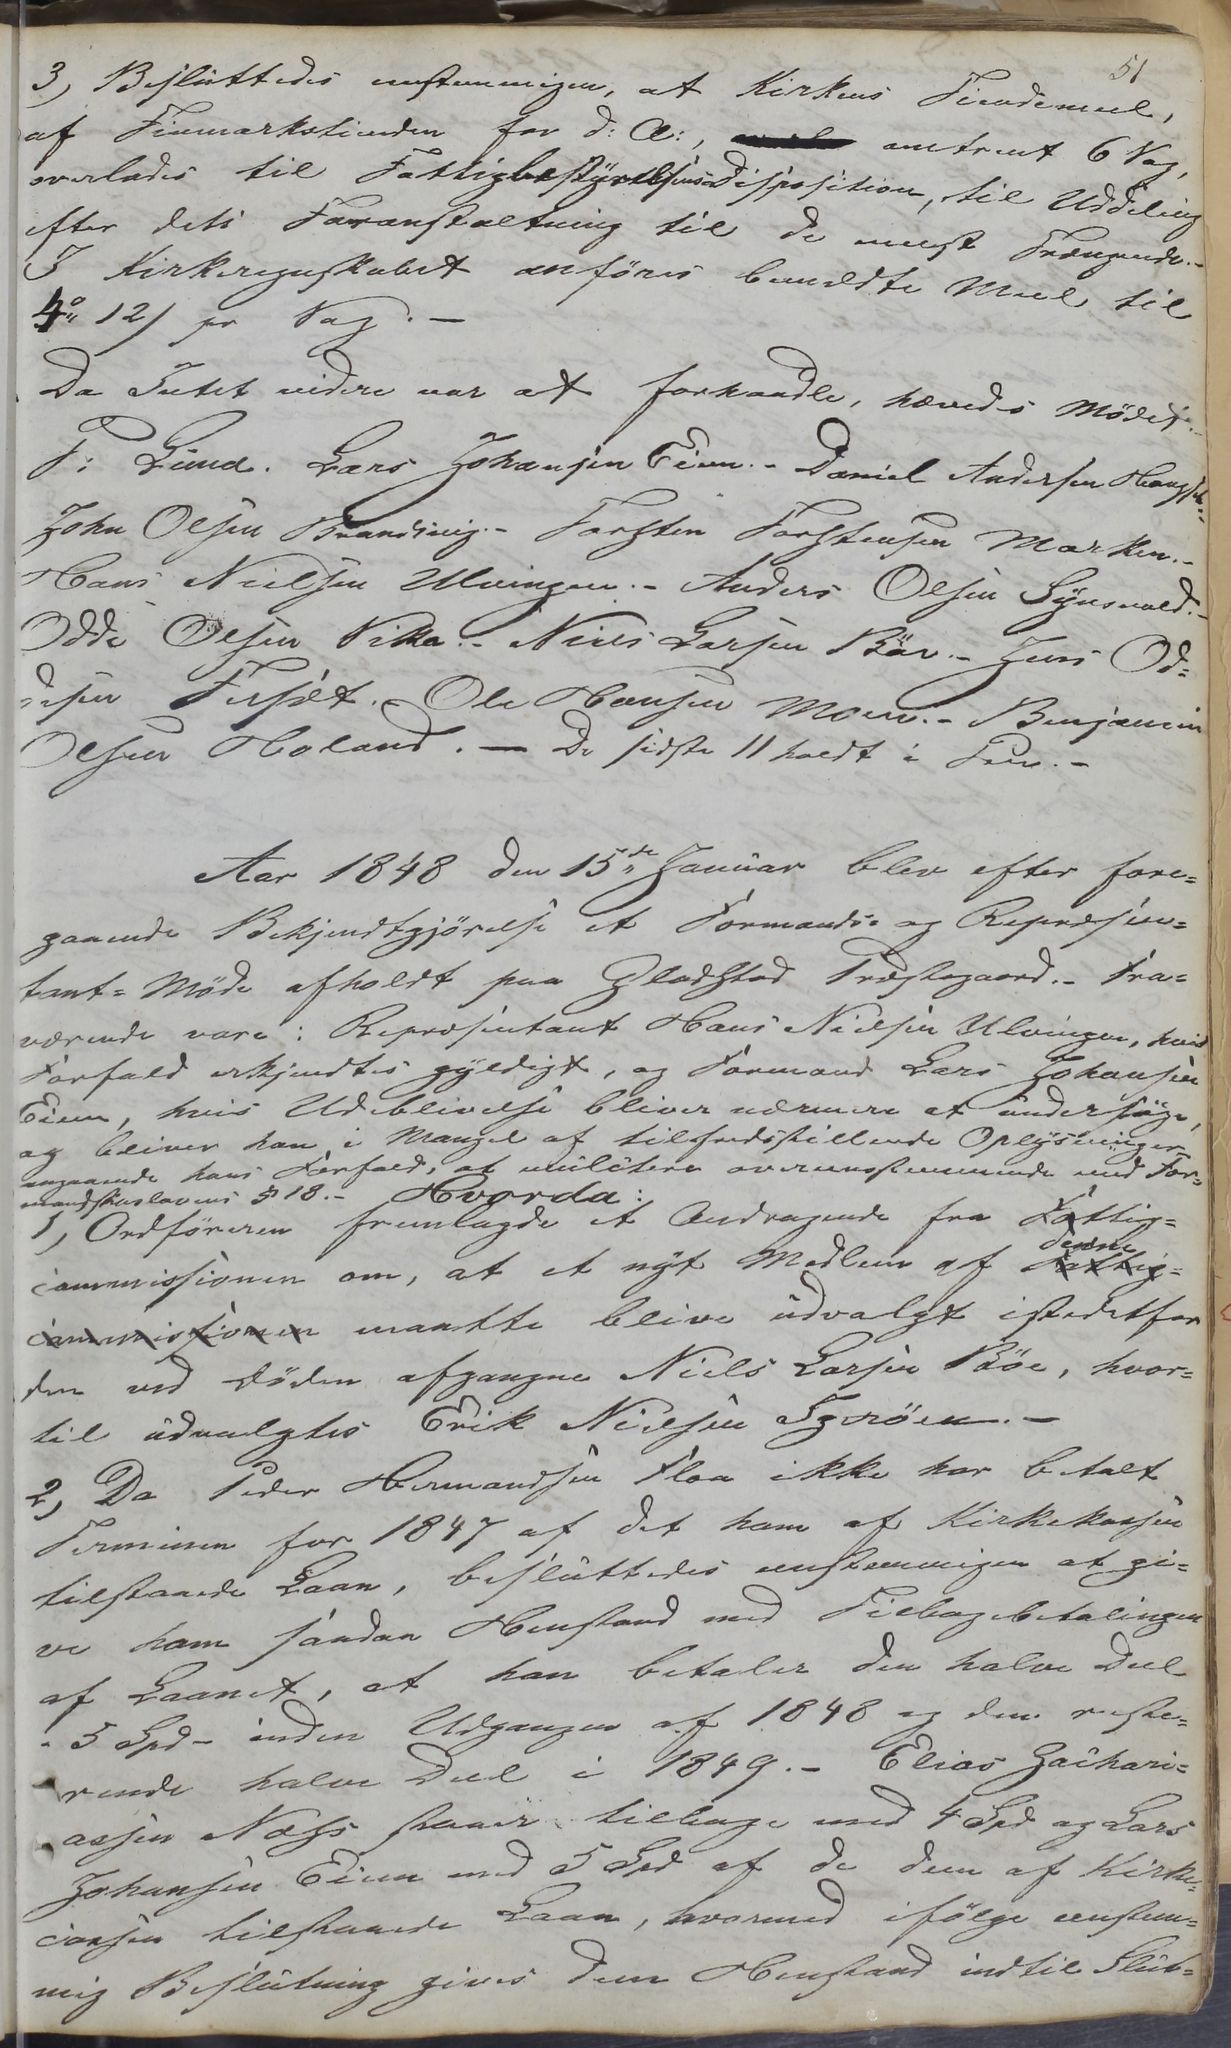 51
3, Besluttedes eenstemmigen, at Kirkens Tiendemeel,
af Finmarkstienden for d: A:, omtrent 6 Vog,
overlades til Fattigbestyrelsens Disposition, til Uddeling
efter dets Foranstaltning til de meest Trængende.-
I Kirkeregnskabet anføres bemeldte Meel til
12 / pr Vog.-
Da Intet videre var at forhandle, hævedes Mødet.-
F: Lund. Lars Johansen Eien.- Daniel Andersen
John Olsen Brandsvig.- Torsten Torstensen Marken.-
Hans Nielsen Ulvingen.- Anders Olsen Lynsvold.-
Odde Olsen Vikke.- Niels Larsen Böe.- Jens Od=
desen Forsæt.- Ole Hansen Moen.- Benjamin
Olsen Holand.- De sidste 11 holdt i Pen.-
Aar 1848 den 15de Januar blev efter fore=
gaaende Bekjendtgjörelse et Formands- og Repræsen=
tant= Møde afholdt paa Gladstad Præstegaard.- Fra=
værende vare: Repræsentant Hans Nielsen Ulvingen, hvis
Forfald erkjendtes gyldigt, og Formand Lars Johansen
Eien, hvis Udeblivelse bliver nærmere at undersøge,
og bliver han i Mangel af tilfredsstillende Oplysninger
angaaende hans Forfald, at mulctere overensstemmende med For=
mandskabslovens § 18.- Hvorda:
1, Ordföreren fremlagde et Andragende fra Fattig=
commissionen om, at et nyt Medlem af Fattig= denne
commissionen maatte blive udvalgt istedetfor
den ved Döden afgangne Niels Larsen Böe, hvor=
til udvalgtes Erik Nielsen Igeröen.-
2, Da Peder Hermandsen Floa ikke har betalt
Terminen for 1847 af det ham af Kirkekassen
tilstaaede Laan, besluttedes eenstemmigen at gi=
ve ham saadan Henstand med Tilbagebetalingen
af Laanet, at han betaler den halve Deel
- 5 Spd - inden Udgangen af 1848 og den reste=
rende halve Deel i 1849.- Elias Zachari=
assen Næss staaer tilbage med 4 Spd og Lars
Johansen Eien med 5 Spd af de dem af Kirke=
cassen tilstaaede Laan, hvormed ifölge eenstem=
mig Beslutning gives dem Henstand indtil Slut=